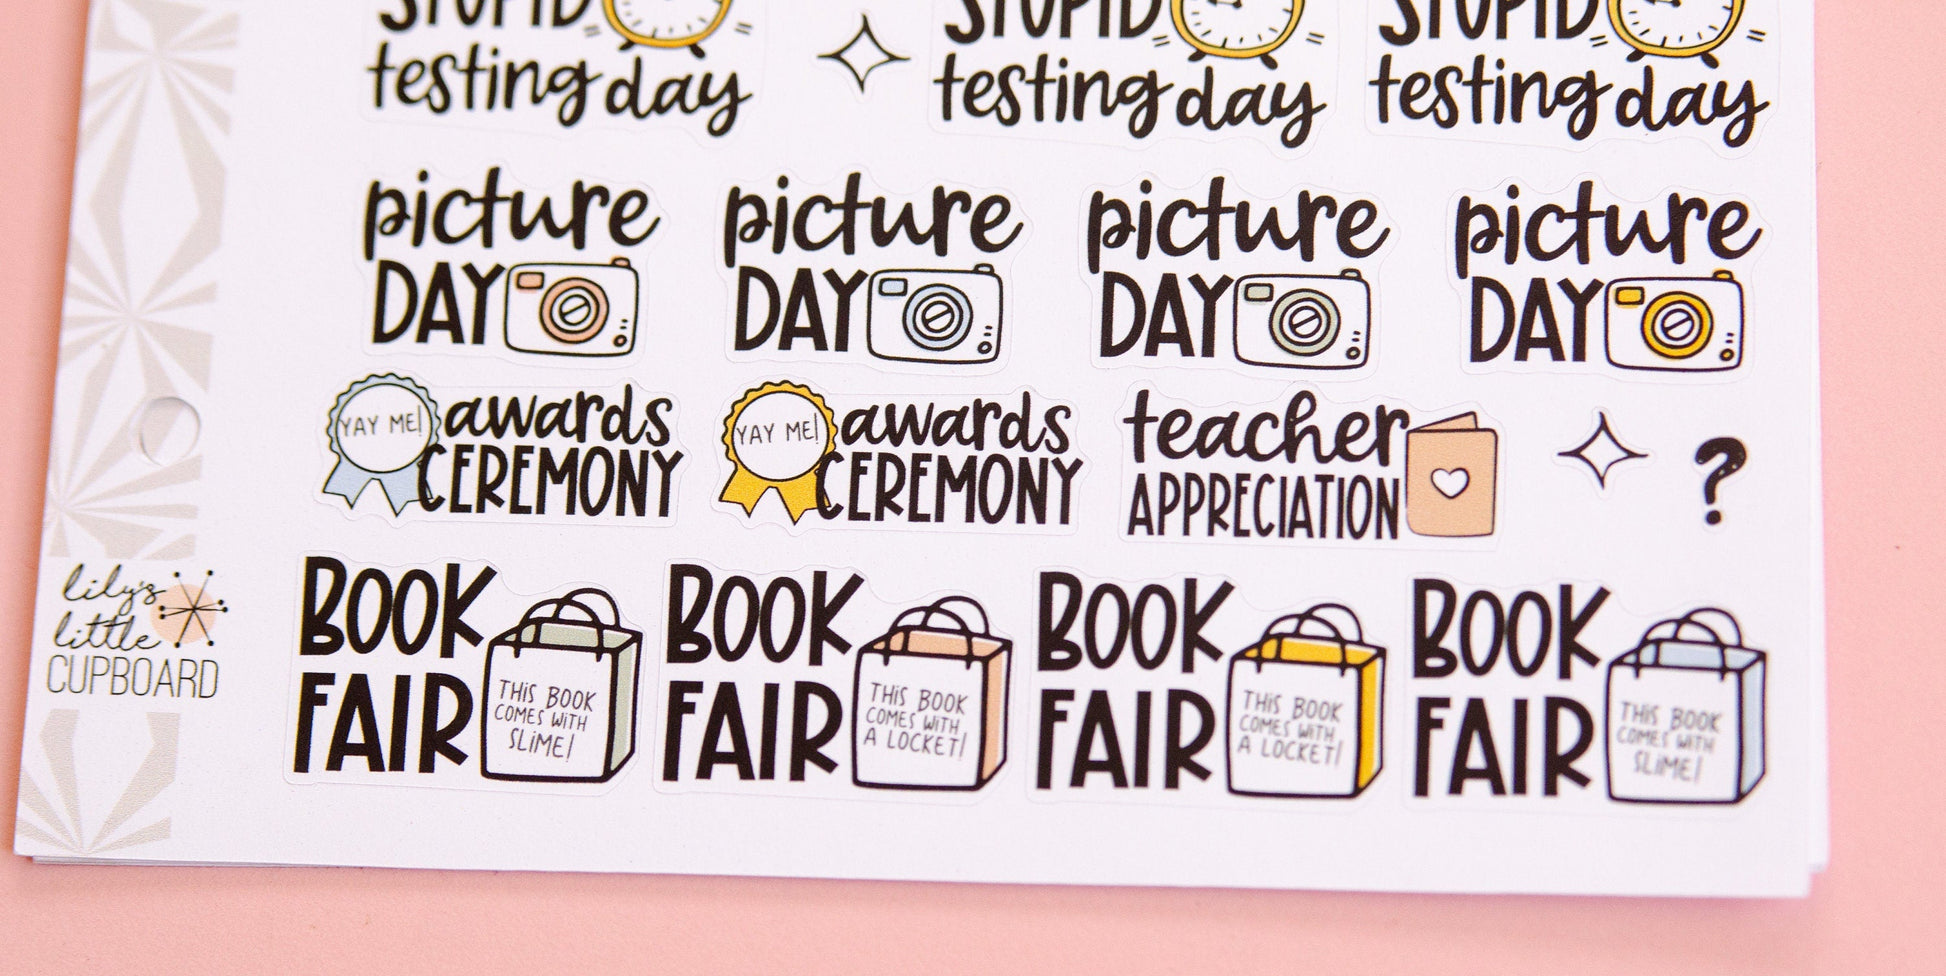 STUPID
testing day
STUPID
testing day
STUPID
testing day
picture
DAY
picture
DAY
picture
DAY
picture
DAY
YAY ME!
awards
CEREMONY
YAY ME!
awards
CEREMONY
teacher
APPRECIATION
?
lily's
little
CUPBOARD
BOOK
FAIR
THIS BOOK
COMES WITH
SLIME!
BOOK
FAIR
THIS BOOK
COMES WITH
A LOCKET!
BOOK
FAIR
THIS BOOK
COMES WITH
A LOCKET!
BOOK
FAIR
THIS BOOK
COMES WITH
SLIME!